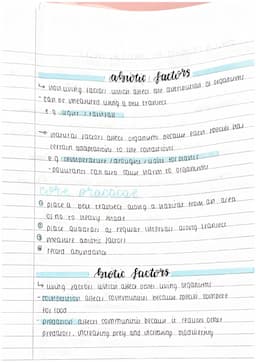 abiotic factors
↳ non living factors which affect the distribution of organisms
- can be measured using a belt transect
e.g. light, rainfall
→ natural factors affect organisms because each species has
certain adaptations to life conditions
e.g. temperature, drought, water for plants
- pollutants can also cause harm to organisms
core practical
① place a belt transect along a habitat from an area
② place quadrats at regular intervals along transect
③ measure abiotic factor
④ record abundance
biotic factors
↳ living factors which affect other living organisms
- competition affects communities because species compete
for food
- predation affects communities because it reduces other
predators, increasing prey and increasing biodiversity